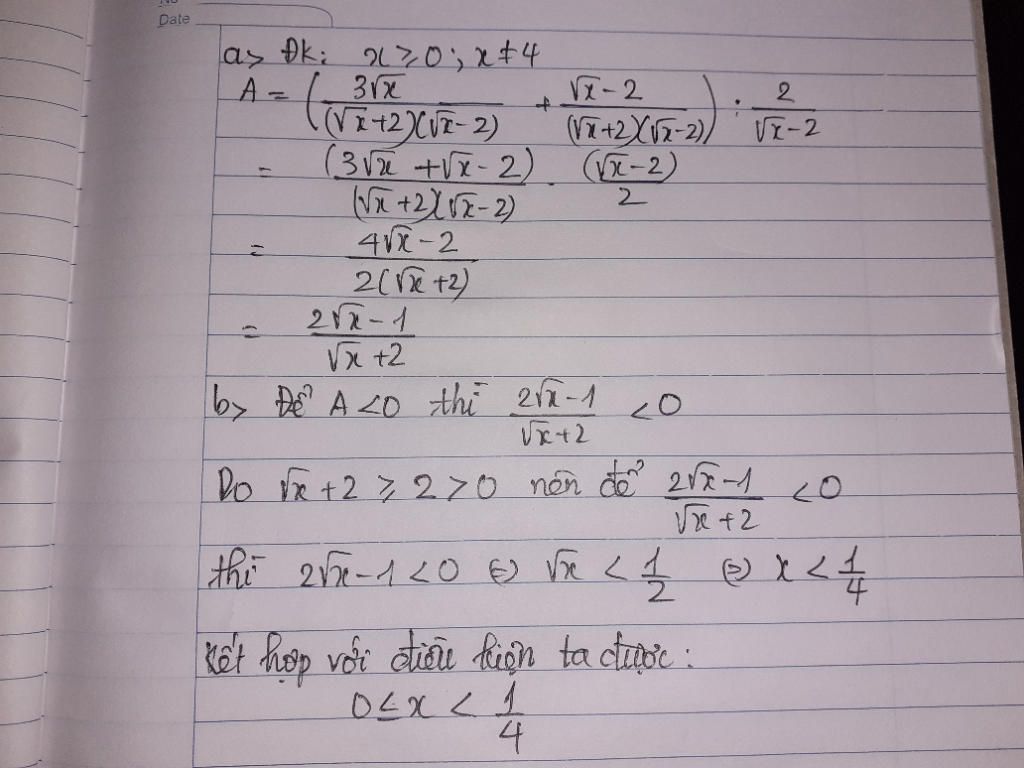 Date
a> ĐK: x ≥ 0; x ≠ 4
A = (3√x / (√x+2)(√x-2) + √x-2 / (√x+2)(√x-2)) : 2 / √x-2
= (3√x + √x - 2) / (√x+2)(√x-2) . (√x-2) / 2
= 4√x - 2 / 2(√x+2)
= 2√x - 1 / √x + 2
b> Để A < 0 thì 2√x - 1 / √x + 2 < 0
Do √x + 2 ≥ 2 > 0 nên để 2√x - 1 / √x + 2 < 0
thì 2√x - 1 < 0 ⇔ √x < 1/2 ⇔ x < 1/4
Kết hợp với điều kiện ta được:
0 ≤ x < 1/4